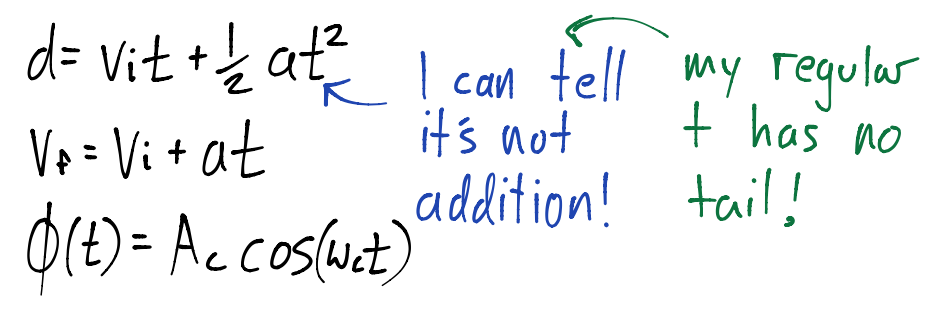 d = vᵢt + ½ at²
v_f = vᵢ + at
ϕ(t) = A_c cos(ω_c t)
I can tell
it's not
addition!
my regular
t has no
tail!